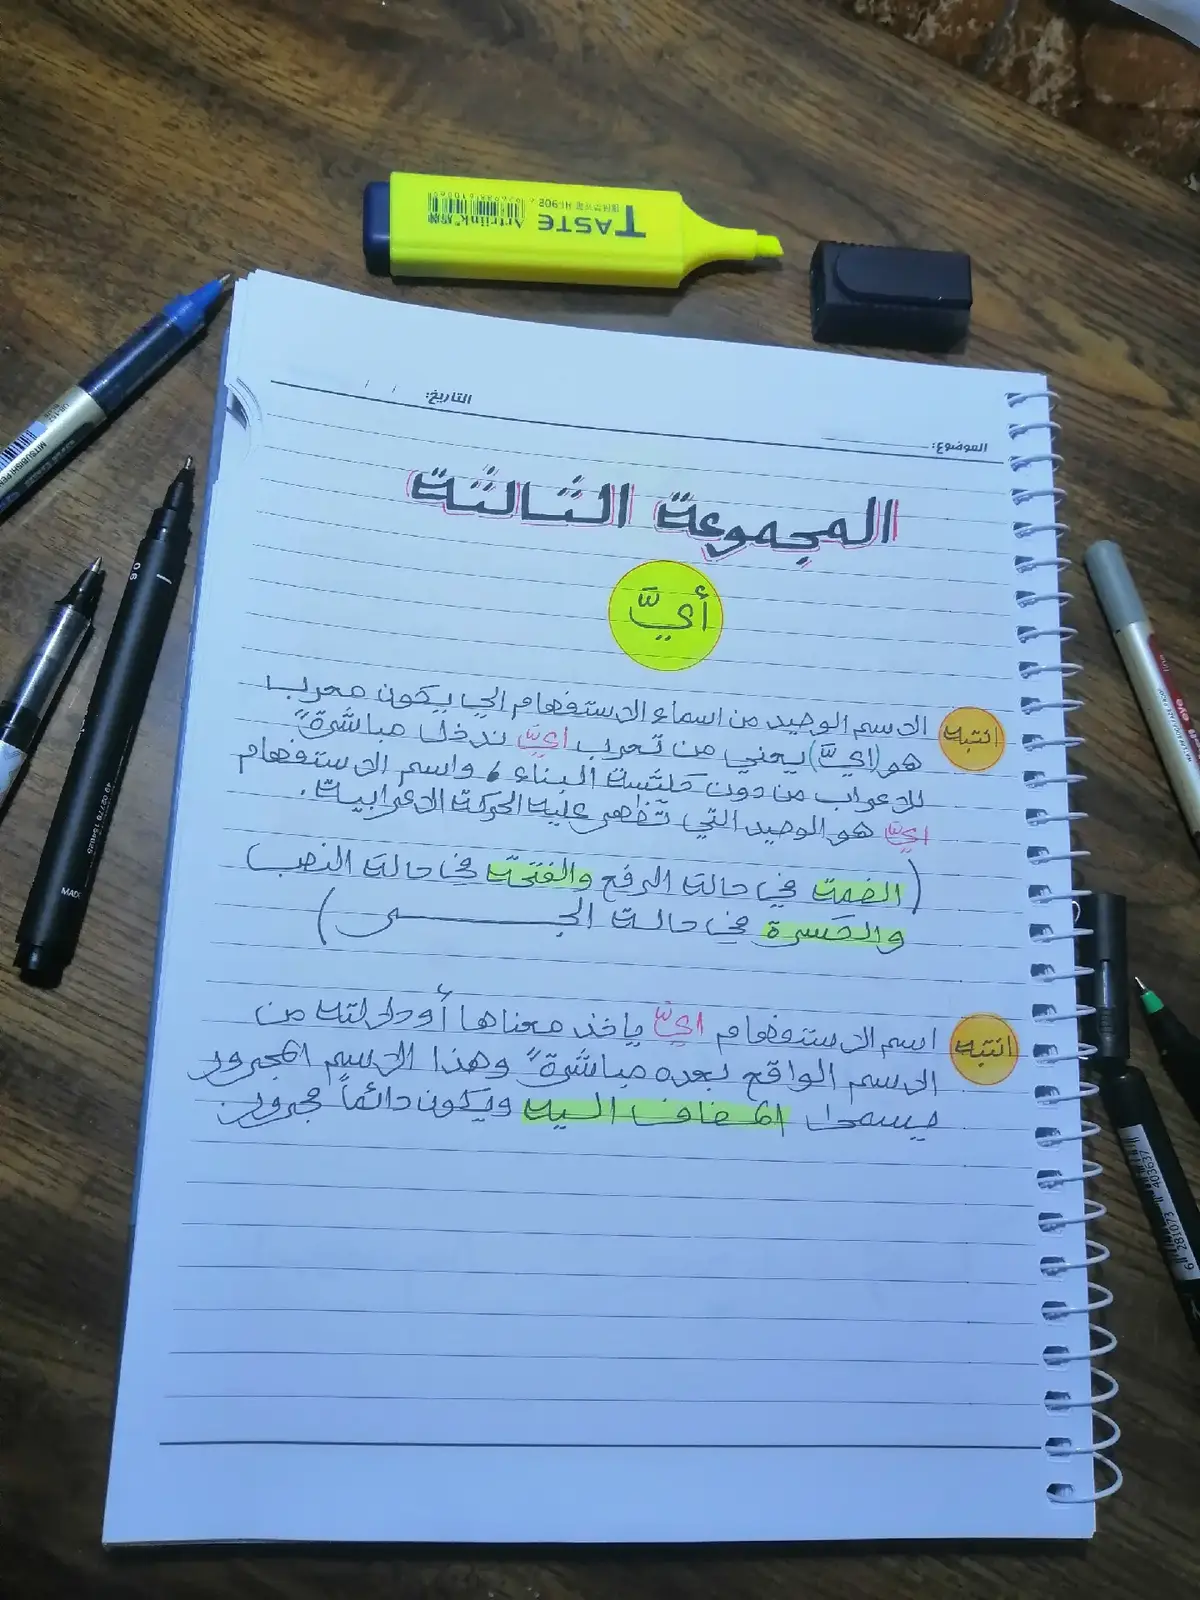 TASTE
Artriink
HI-902
التاريخ: / /
الموضوع:
المجموعة الثالثة
أيَّ
انتبه
الاسم الوحيد من اسماء الاستفهام الي يكون معرب
هو (ايَّ) يعني من تعرب ايَّ ندخل مباشرةً
للاعراب من دون كلمة البناء، واسم الاستفهام
ايَّ هو الوحيد التي تظهر عليه الحركة الاعرابية.
(الضمة في حالة الرفع والفتحة في حالة النصب
والكسرة في حالة الجر)
انتبه
اسم الاستفهام ايَّ ياخذ معناها أو دلالته من
الاسم الواقع بعده مباشرةً وهذا الاسم المجرور
يسمى المضاف اليه ويكون دائماً مجرور
0.8
MITSUBISHI PEN
eye
6 281073 403637